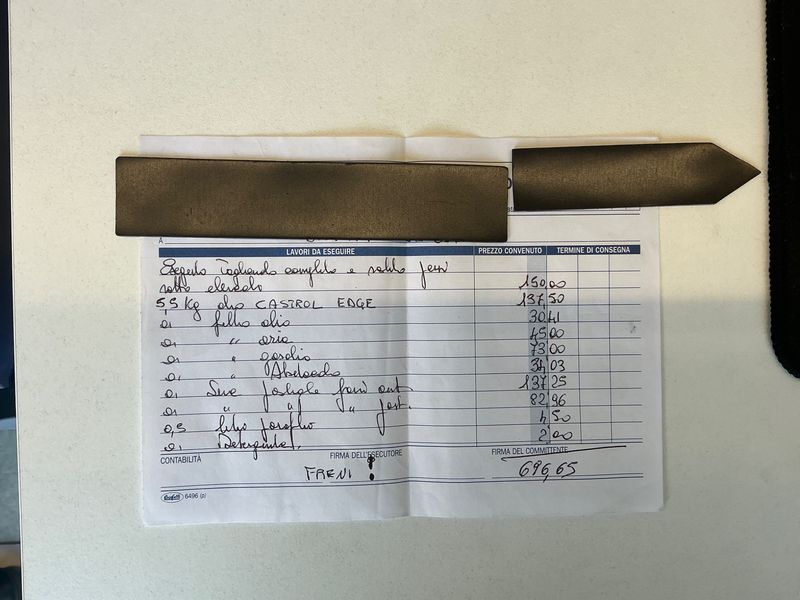 A
LAVORI DA ESEGUIRE PREZZO CONVENUTO TERMINE DI CONSEGNA
Eseguito Tagliando completo e
sotto elencato 150,00
5,5 Kg olio CASTROL EDGE 137,50
01 filtro olio 30 41
01 " aria 45 00
01 " gasolio 73 00
01 " Abitacolo 34 03
01 Serie pastiglie freni ant. 137 25
01 " " " post. 82,96
0,5 4 50
01 Detergente 2,00
CONTABILITÀ FIRMA DELL'ESECUTORE FIRMA DEL COMMITTENTE
FRENI ! 696,65
6496 (p)